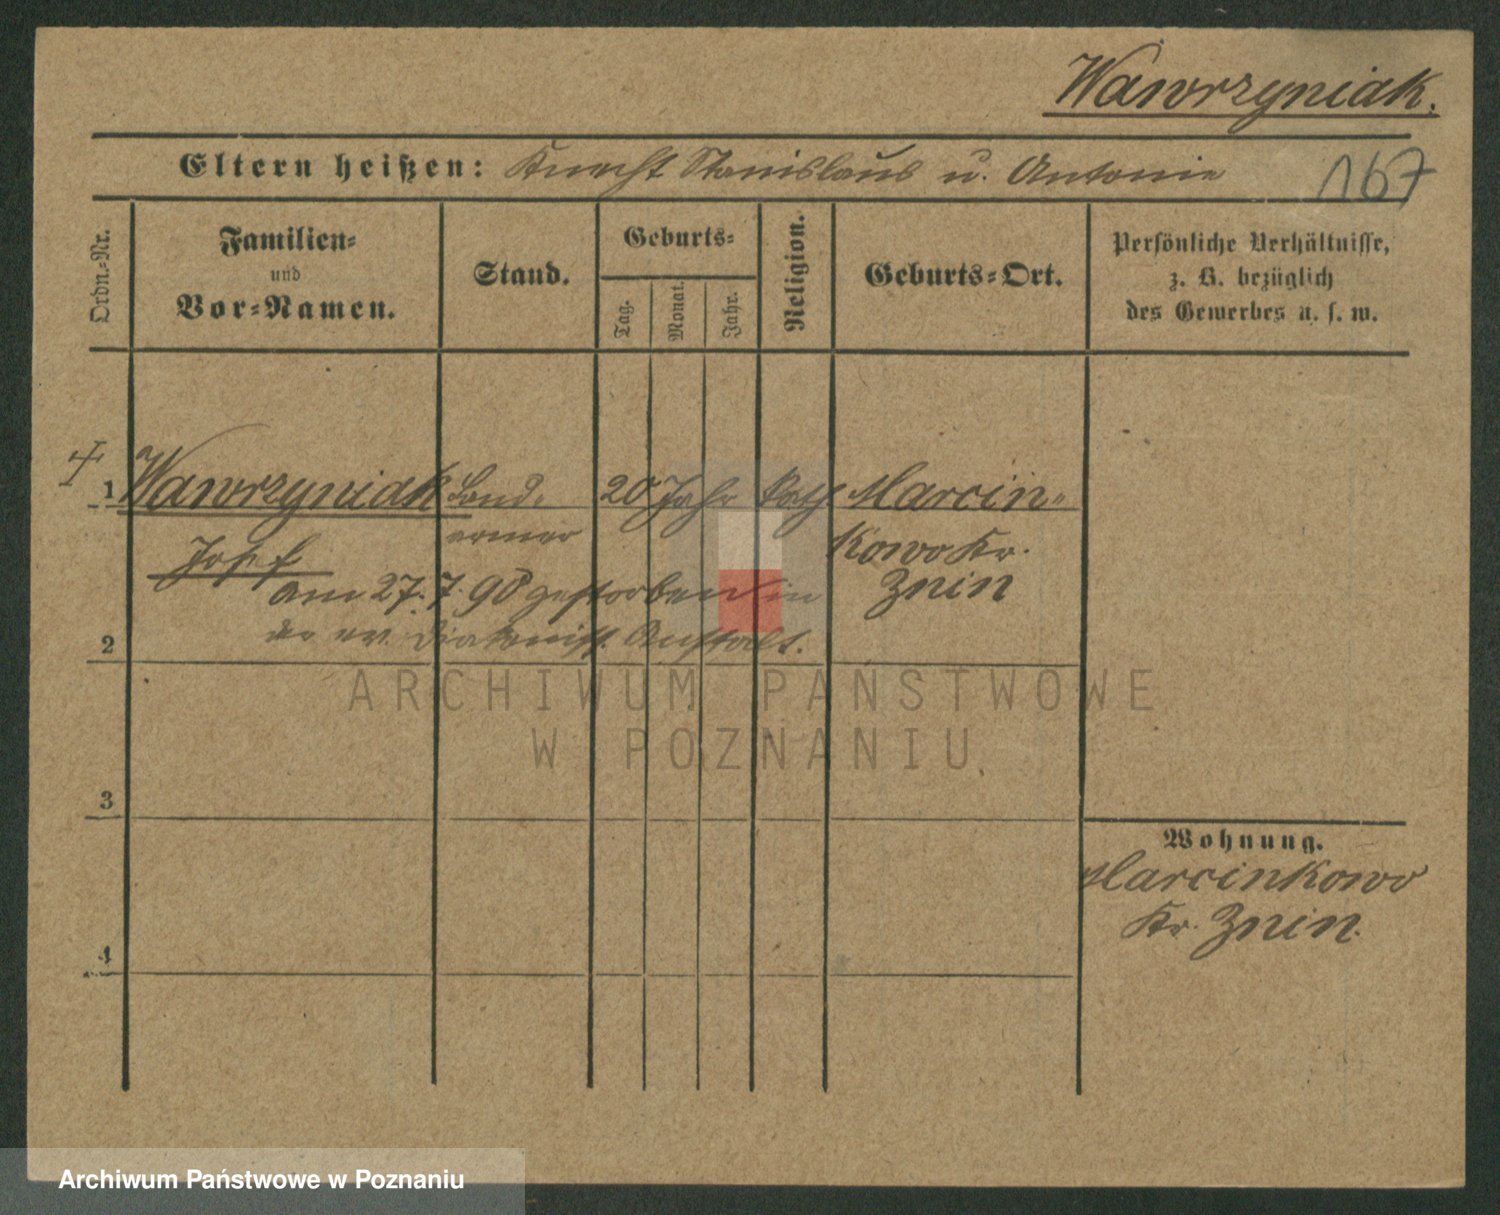 Wawrzyniak.
Eltern heißen: Knecht Stanislaus u. Antonie
167
Ordn.-Nr.
Familien-
und
Vor-Namen.
Stand.
Geburts-
Tag.
Monat.
Jahr.
Religion.
Geburts-Ort.
Persönliche Verhältnisse,
z. B. bezüglich
des Gewerbes u. s. w.
1 Wawrzyniak Land- 20 Jahr Kath. Marcin-
armer kowo Kr.
Josef Znin
am 27.7.98 gestorben in
der ev. Diakoniss. Anstalt.
2
ARCHIWUM PAŃSTWOWE
W POZNANIU
3
Wohnung.
Marcinkowo
Kr. Znin.
4
Archiwum Państwowe w Poznaniu